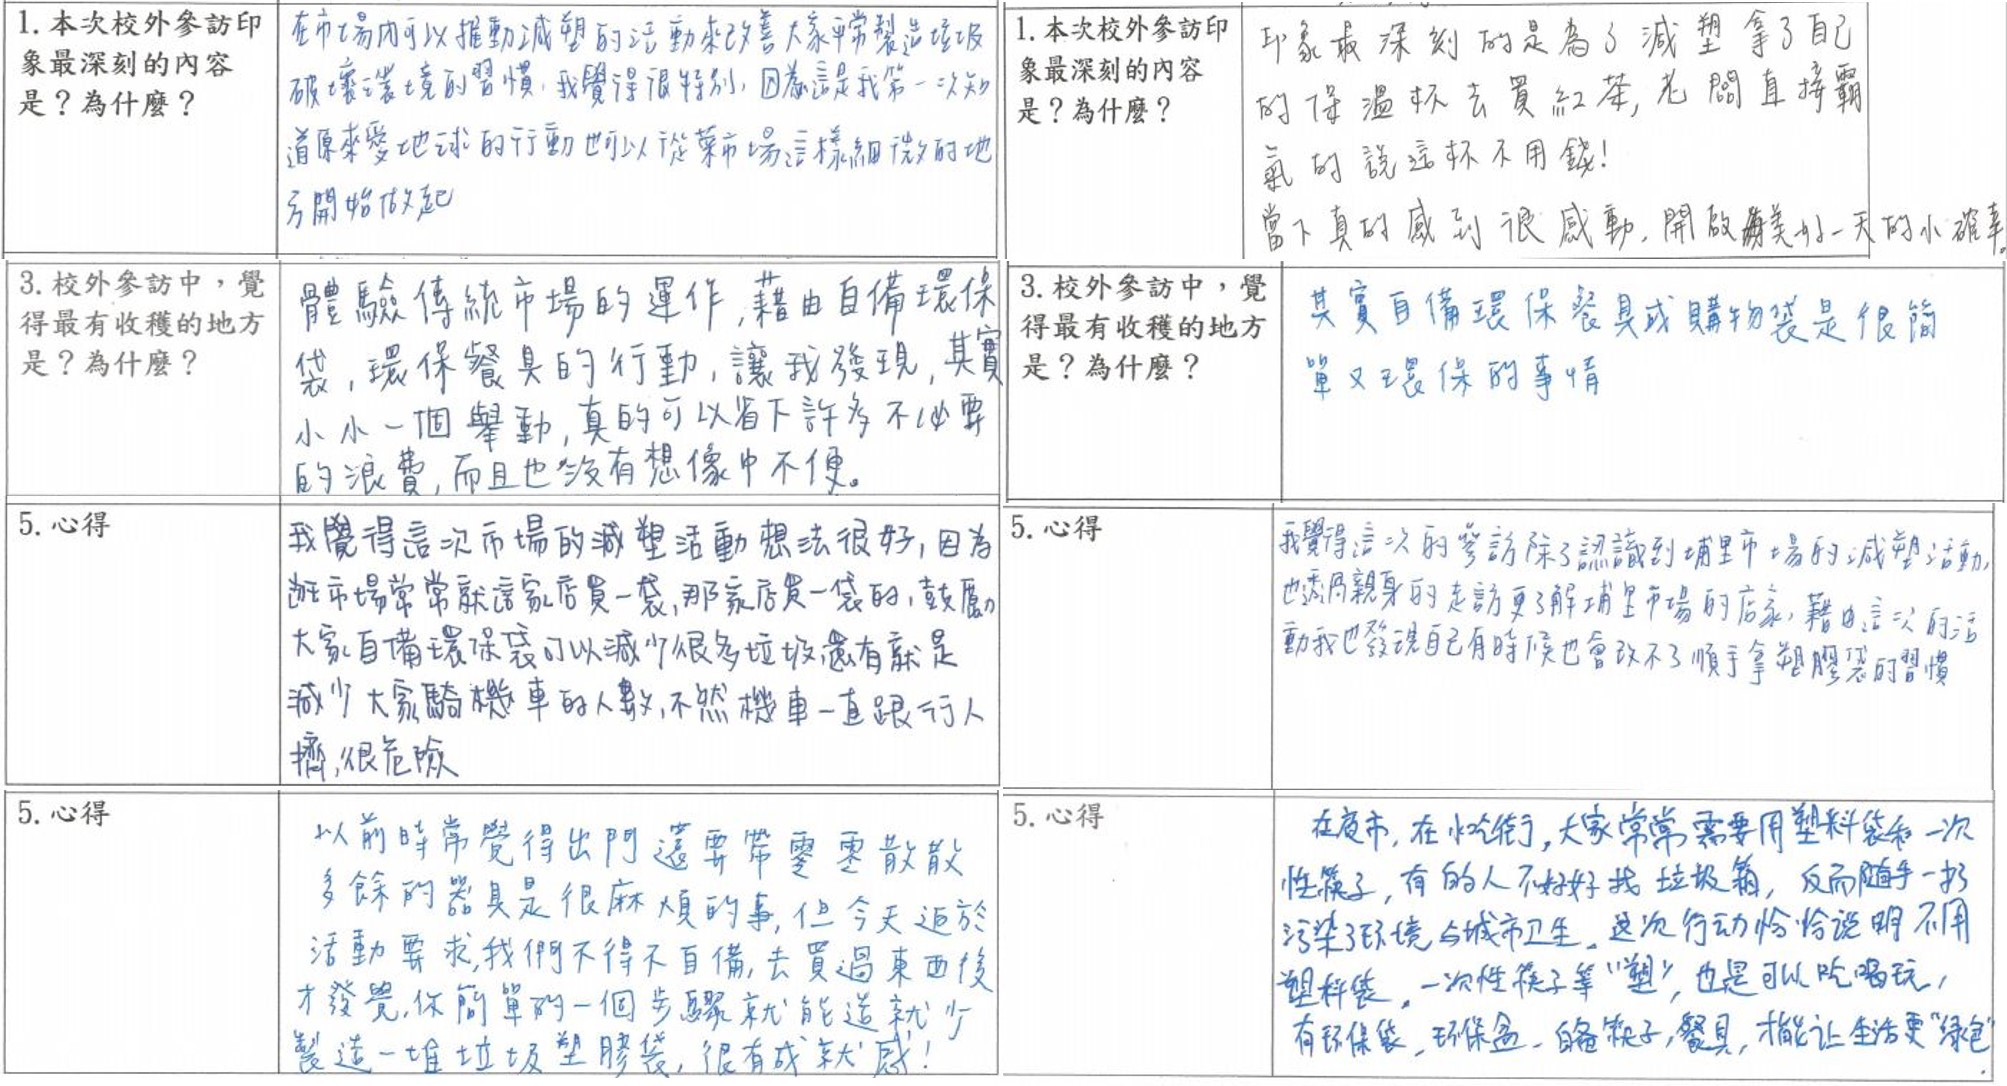 1.本次校外參訪印
象最深刻的內容
是？為什麼？
在市場內可以推動減塑的活動來改善大家平常製造垃圾
破壞環境的習慣，我覺得很特別，因為這是我第一次知
道原來愛地球的行動也可以從菜市場這樣細微的地
方開始做起
1.本次校外參訪印
象最深刻的內容
是？為什麼？
印象最深刻的是為了減塑拿了自己
的保溫杯去買紅茶,老闆直接霸
氣的說這杯不用錢!
當下真的感到很感動,開啟美好一天的小確幸。
3.校外參訪中，覺
得最有收穫的地方
是？為什麼？
體驗傳統市場的運作,藉由自備環保
袋,環保餐具的行動,讓我發現,其實
小小一個舉動,真的可以省下許多不必要
的浪費,而且也沒有想像中不便。
3.校外參訪中，覺
得最有收穫的地方
是？為什麼？
其實自備環保餐具或購物袋是很簡
單又環保的事情
5.心得
我覺得這次市場的減塑活動想法很好,因為
逛市場常常就這家店買一袋,那家店買一袋的,鼓勵
大家自備環保袋可以減少很多垃圾還有就是
減少大家騎機車的人數,不然機車一直跟行人
擠,很危險
5.心得
我覺得這次的參訪除了認識到埔里市場的減塑活動,
也透過親身的走訪更了解埔里市場的店家,藉由這次的活
動我也發現自己有時候也會改不了順手拿塑膠袋的習慣
5.心得
以前時常覺得出門還要帶零零散散
多餘的器具是很麻煩的事,但今天迫於
活動要求,我們不得不自備,去買過東西後
才發覺,你簡單的一個步驟就能造就少
製造一堆垃圾塑膠袋,很有成就感!
5.心得
在夜市,在小吃街,大家常常需要用塑料袋和一次
性筷子,有的人不好好找垃圾箱,反而随手一扔
污染了环境与城市卫生。这次行动恰恰说明不用
塑料袋,一次性筷子等"塑",也是可以吃喝玩,
有环保袋,环保盒,自备筷子,餐具,才能让生活更"绿色".